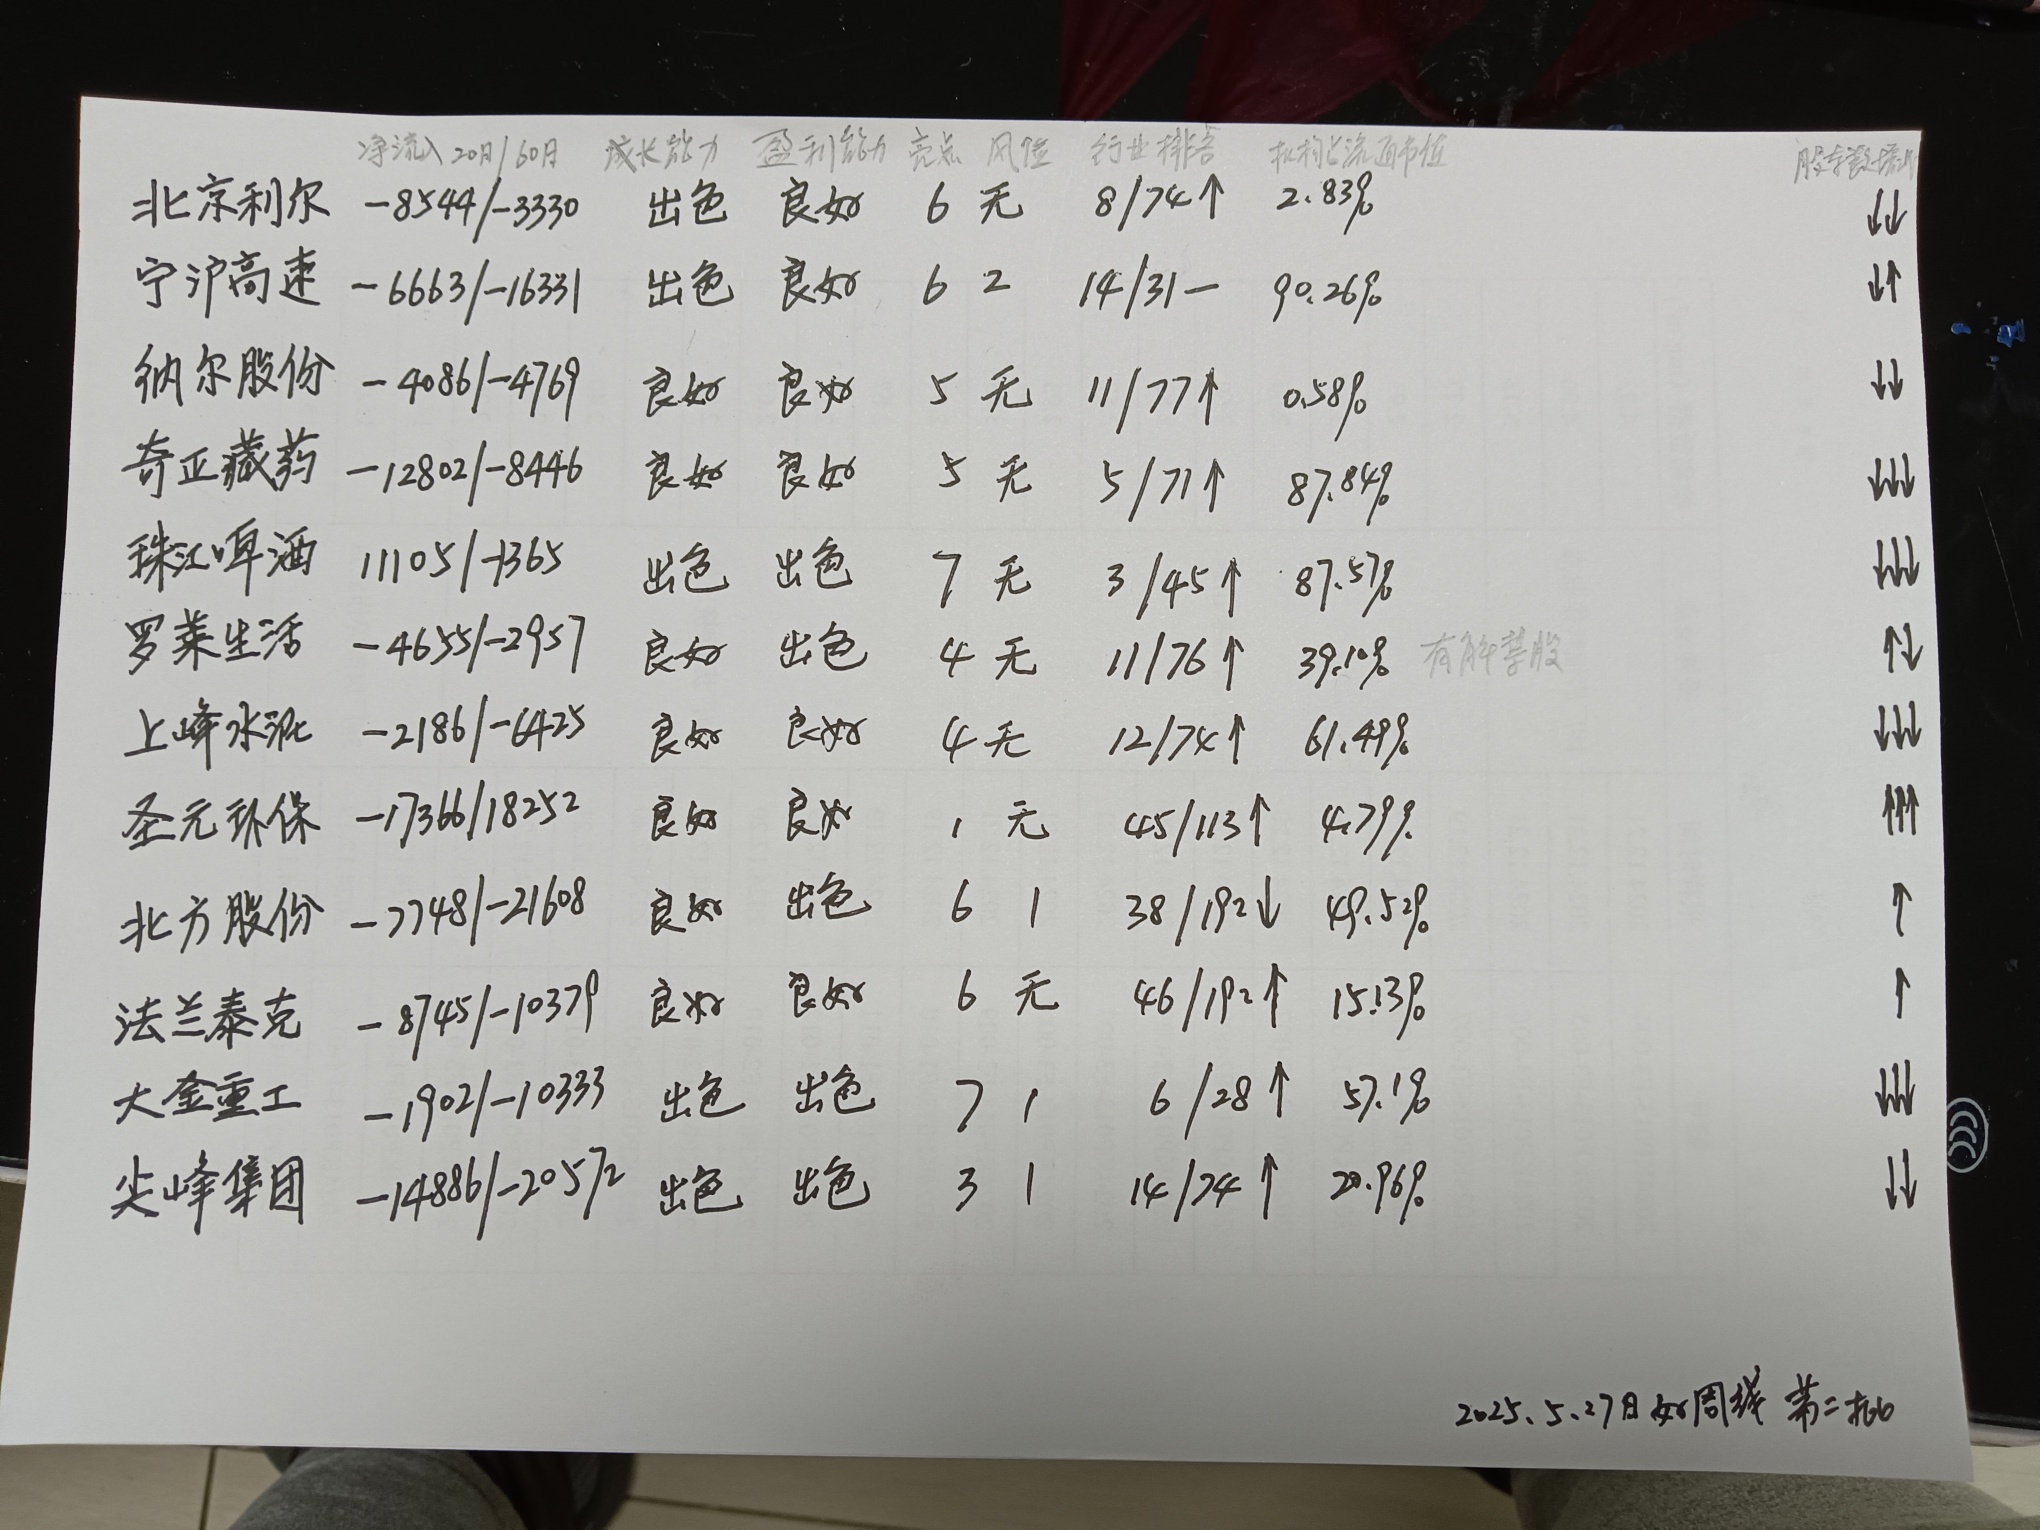 净流入20日/60日 成长能力 盈利能力 亮点 风险 行业排名 机构占流通市值 股东数增
北京利尔 -8544/-3330 出色 良好 6 无 8/74↑ 2.83% ↓↓
宁沪高速 -6663/-16331 出色 良好 6 2 14/31- 90.26% ↓↑
纳尔股份 -4086/-4769 良好 良好 5 无 11/77↑ 0.58% ↓↓
奇正藏药 -12802/-8446 良好 良好 5 无 5/71↑ 87.84% ↓↓↓
珠江啤酒 11105/-1365 出色 出色 7 无 3/45↑ 87.57% ↓↓↓
罗莱生活 -4655/-2957 良好 出色 4 无 11/76↑ 39.10% 有解禁股 ↑↓
上峰水泥 -2186/-6425 良好 良好 4 无 12/74↑ 61.49% ↓↓↓
圣元环保 -17366/18252 良好 良好 1 无 45/113↑ 4.79% ↑↑↑
北方股份 -7748/-21608 良好 出色 6 1 38/192↓ 49.52% ↑
法兰泰克 -8745/-10379 良好 良好 6 无 46/192↑ 15.13% ↑
大金重工 -1902/-10333 出色 出色 7 1 6/28↑ 57.1% ↓↓↓
尖峰集团 -14886/-20572 出色 出色 3 1 14/74↑ 20.96% ↓↓
2025.5.27日 好周线 第二批